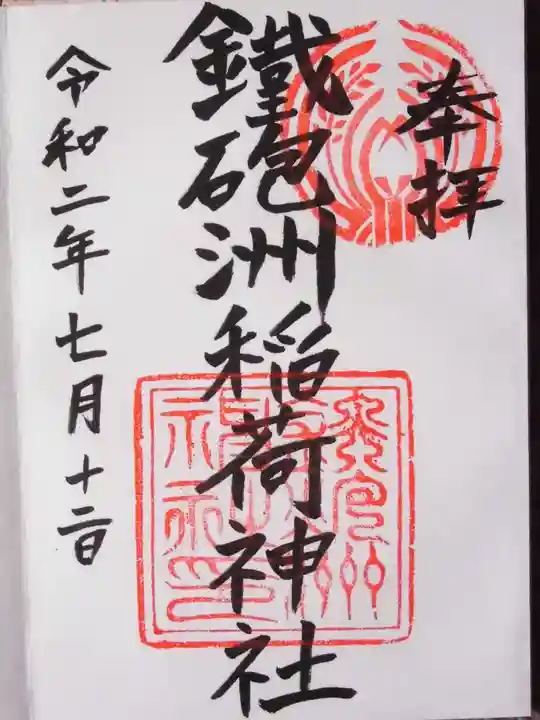 奉拝
鐵砲洲稲荷神社
令和二年七月十二日